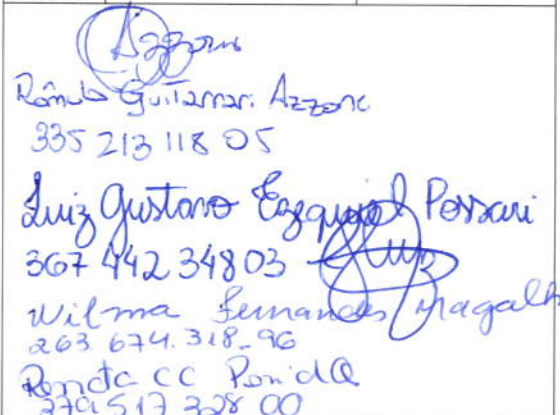 Azzone
Rômulo Guitarrari Azzone
335 213 118 05
Luiz Gustavo Ezequiel Possari
367 442 348 03 Luiz
Wilma Fernandes Magalh
263 674.318-96
Renata CC
379 517 328 00